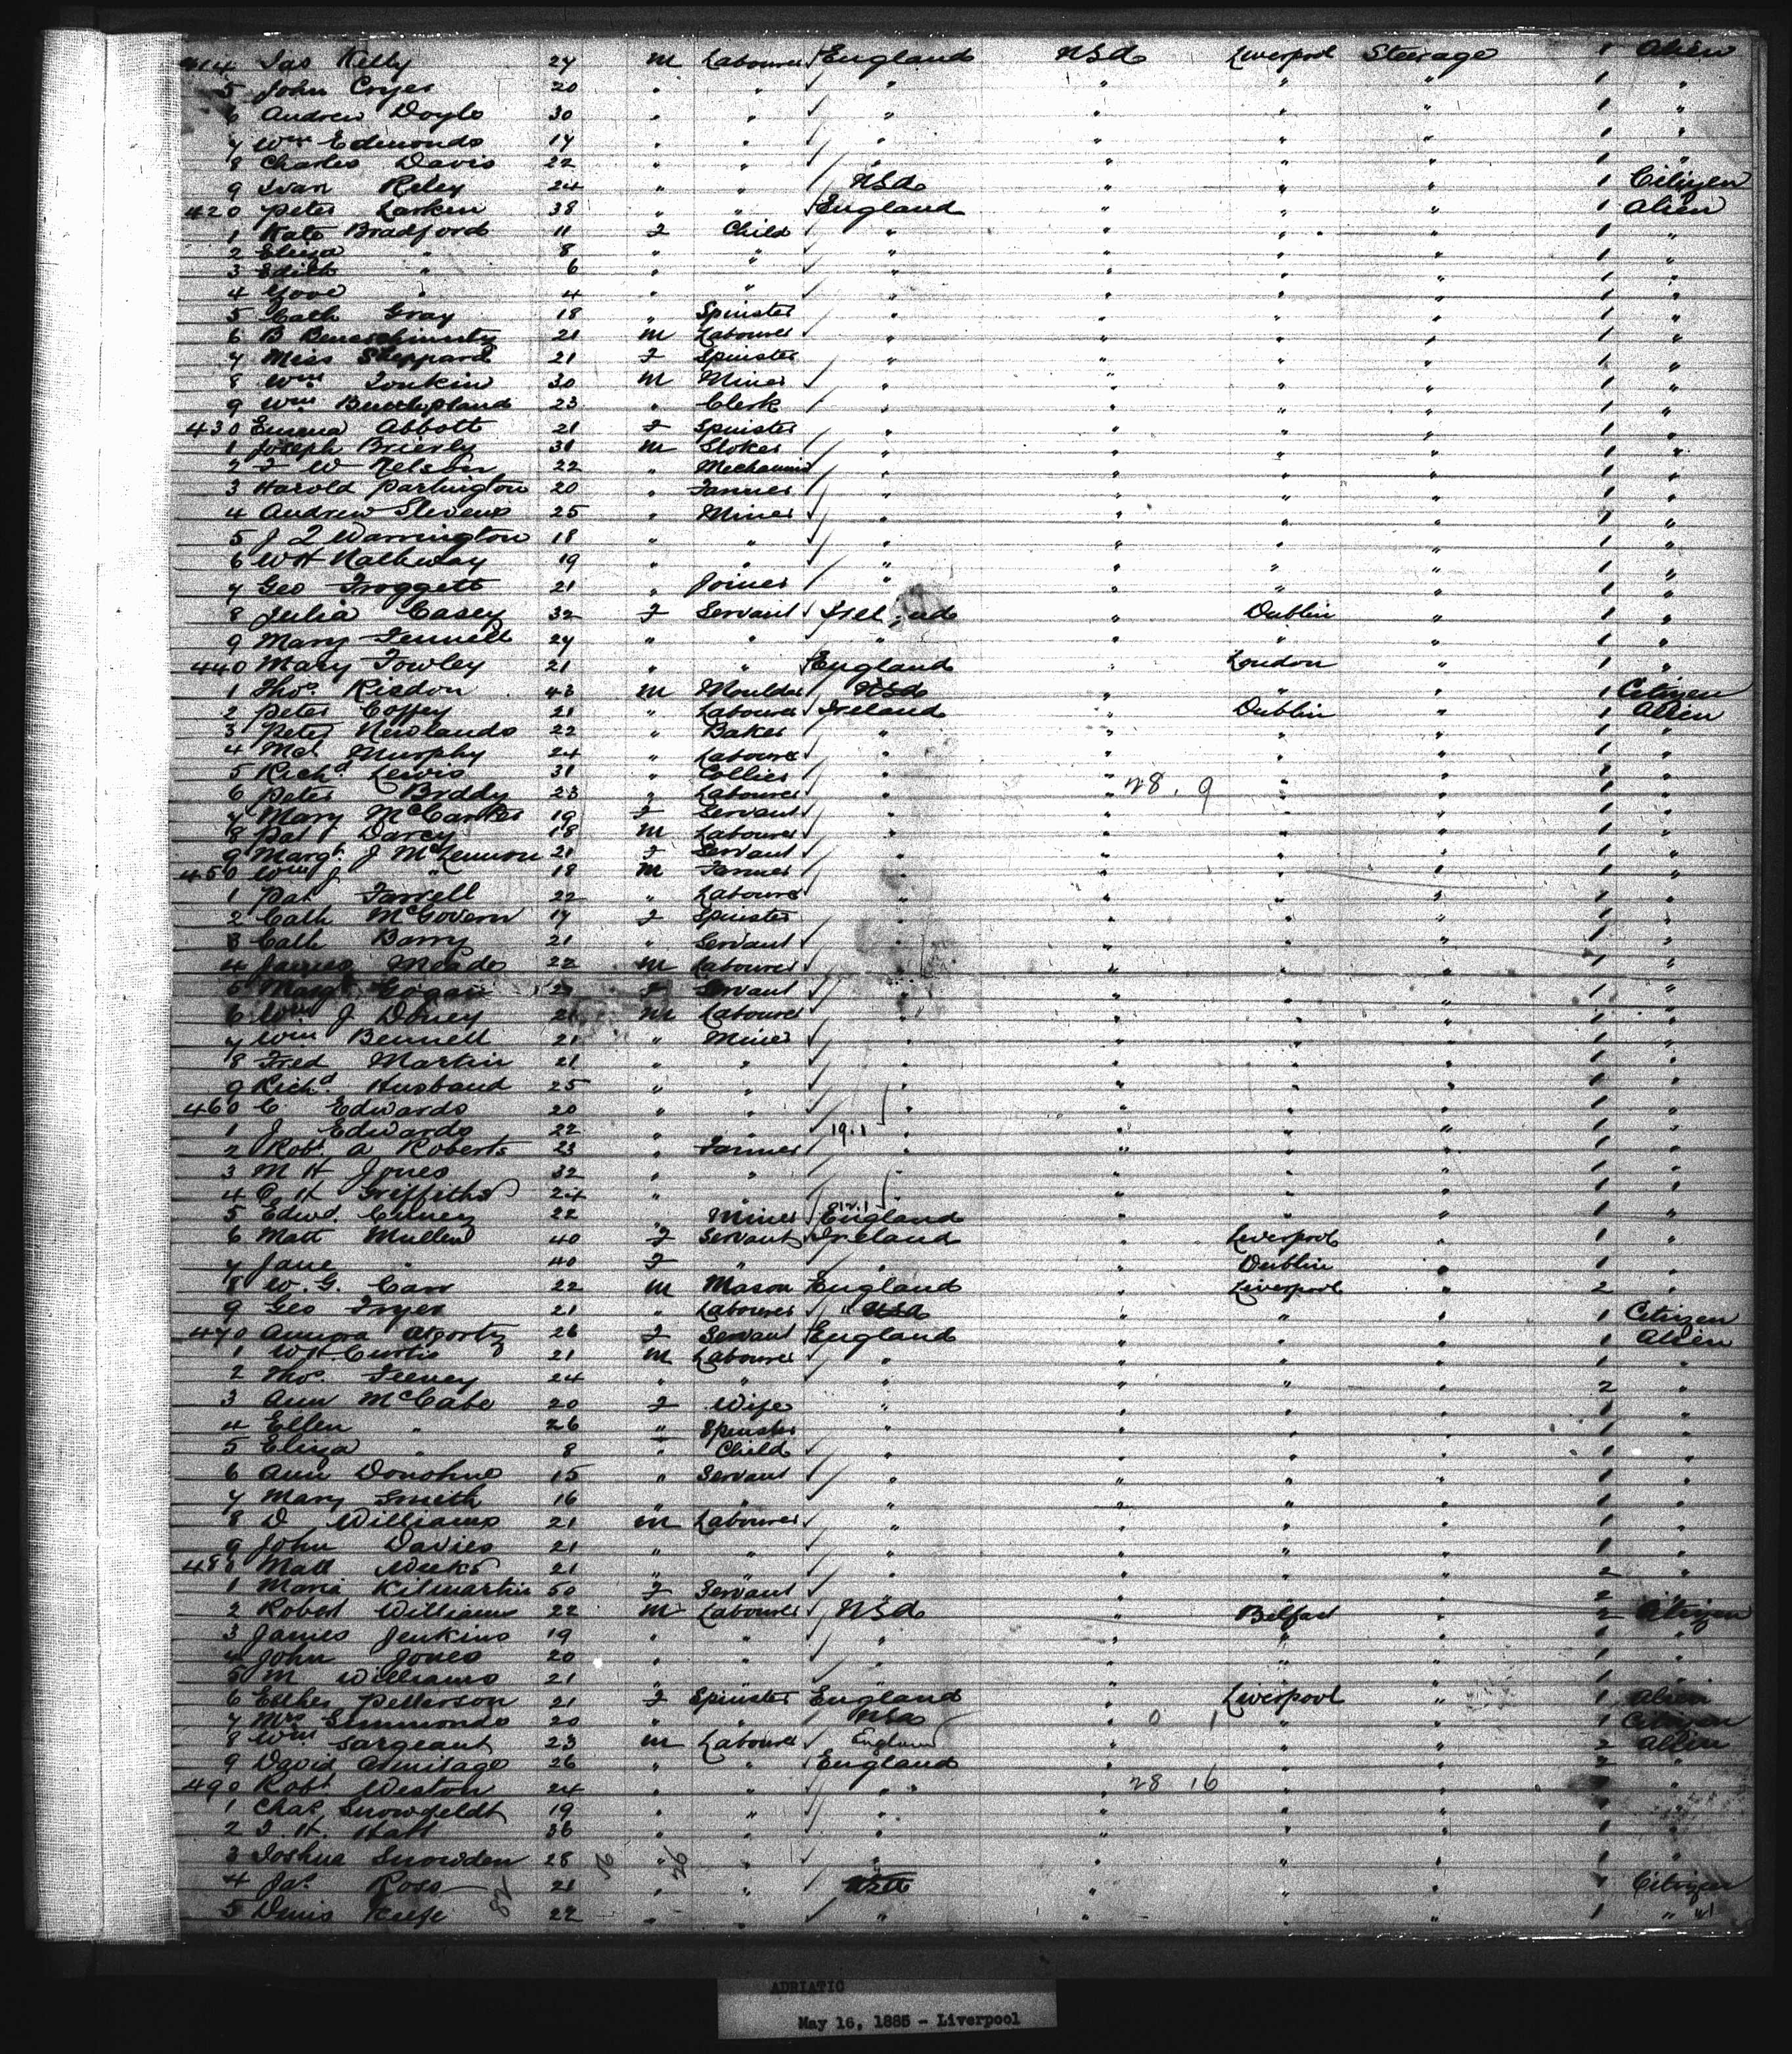 414 Jas Kelly 24 m Labourer England USA Liverpool Steerage 1 Alien
5 John Cryer 20 " " " " " " 1 "
6 Andrew Doyle 30 " " " " " " 1 "
7 Wm Edmonds 17 " " " " " " 1 "
8 Charles Davis 22 " " " " " " 1 "
9 Ivan Riley 24 " " USA " " " 1 Citizen
420 Peter Larken 38 " " England " " " 1 Alien
1 Kate Bradford 11 F Child " " " " 1 "
2 Eliza " 8 " " " " " " 1 "
3 Edith " 6 " " " " " " 1 "
4 " 4 " " " " " " 1 "
5 Cath Gray 18 " Spinster " " " " 1 "
6 B 21 m Labourer " " " " 1 "
7 Miss Sheppard 21 F Spinster " " " " 1 "
8 Wm Tonkin 30 m Miner " " " " 1 "
9 Wm 23 " Clerk " " " " 1 "
430 Emma Abbott 21 F Spinster " " " " 1 "
1 Joseph Brierly 31 m Stoker " " " " 1 "
2 F W Nelson 22 " Mechanic " " " " 1 "
3 Harold Partington 20 " Farmer " " " " 1 "
4 Andrew Stevens 25 " Miner " " " " 1 "
5 J Warrington 18 " " " " " " 1 "
6 W H 19 " " " " " " 1 "
7 Geo Froggett 21 " Joiner " " " " 1 "
8 Julia Casey 32 F Servant Ireland " Dublin " 1 "
9 Mary Fennell 24 " " " " " " 1 "
440 Mary Towley 21 " " England " London " 1 "
1 Thos Risdon 43 m Moulder USA " " " 1 Citizen
2 Peter Coffey 21 " Labourer Ireland " Dublin " 1 Alien
3 Peter Newlands 22 " Baker " " " " 1 "
4 Mcl Murphy 24 " Labourer " " " " 1 "
5 Richd Lewis 31 " Collier " " " " 1 "
6 Peter Briddy 23 " Labourer " " 28.9 " " 1 "
7 Mary 19 F Servant " " " " 1 "
8 Pat Darcy 18 m Labourer " " " " 1 "
9 Margt J McLennon 21 F Servant " " " " 1 "
450 Wm J " 18 m Farmer " " " " 1 "
1 Pat Farrell 22 " Labourer " " " " 1 "
2 Cath McGovern 17 F Spinster " " " " 1 "
3 Cath Barry 21 " Servant " " " " 1 "
4 James Meade 22 m Labourer " " " " 1 "
5 Margt Cogan F Servant " " " " 1 "
6 Wm J Doney 21 m Labourer " " " " 1 "
7 Wm Bennett 21 " Miner " " " " 1 "
8 Fred Martin 21 " " " " " " 1 "
9 Richd Husband 25 " " " " " " 1 "
460 C. Edwards 20 " " " " " " 1 "
1 J Edwards 22 " " 19.1 " " " " 1 "
2 Robt A Roberts 23 " Farmer " " " " 1 "
3 M H Jones 32 " " " " " " 1 "
4 C H Griffiths 24 " " " " " " 1 "
5 Edwd 22 " Miner England " " " 1 "
6 Matt Mullen 40 F Servant Ireland " Liverpool " 1 "
7 Jane " 40 F " " " Dublin " 1 "
8 W. G. Carr 22 m Mason England " Liverpool " 2 "
9 Geo Fryer 21 " Labourer " USA " " " 1 Citizen
470 26 F Servant England " " " 1 Alien
1 W H Curtis 21 m Labourer " " " " 1 "
2 Thos Feeney 24 " " " " " " 2 "
3 Ann McCabe 20 F Wife " " " " 1 "
4 Ellen " 26 " Spinster " " " " 1 "
5 Eliza " 8 " Child " " " " 1 "
6 Ann Donohue 15 " Servant " " " " 1 "
7 Mary Smith 16 " " " " " " 1 "
8 D Williams 21 m Labourer " " " " 1 "
9 John Davies 21 " " " " " " 1 "
480 Matt Meeks 21 " " " " " " 2 "
1 Maria Kilmartin 50 F Servant " " " " 2 "
2 Robert Williams 22 m Labourer USA " Belfast " 2 Citizen
3 James Jenkins 19 " " " " " " 1 "
4 John Jones 20 " " " " " " 1 "
5 M Williams 21 " " " " " " 1 "
6 Esther Petterson 21 F Spinster England " Liverpool " 1 Alien
7 Mrs Simmonds 20 " " USA " 0 1 " " 1 Citizen
8 Wm Sargeant 23 m Labourer England " " " 2 Alien
9 David Armitage 26 " " England " " " 2 "
490 Robt Weston 24 " " " " 28 16 " " "
1 Chas Snowfeldt 19 " " " " " " 1 "
2 J. H. Hall 36 " " " " " " 1 "
3 Joshua Snowden 28 " " " " " " 1 "
4 Jas Ross 21 " " " " " 1 Citizen
5 Denis Keefe 22 " " " " " " 1 "
ADRIATIC
May 16, 1885 - Liverpool